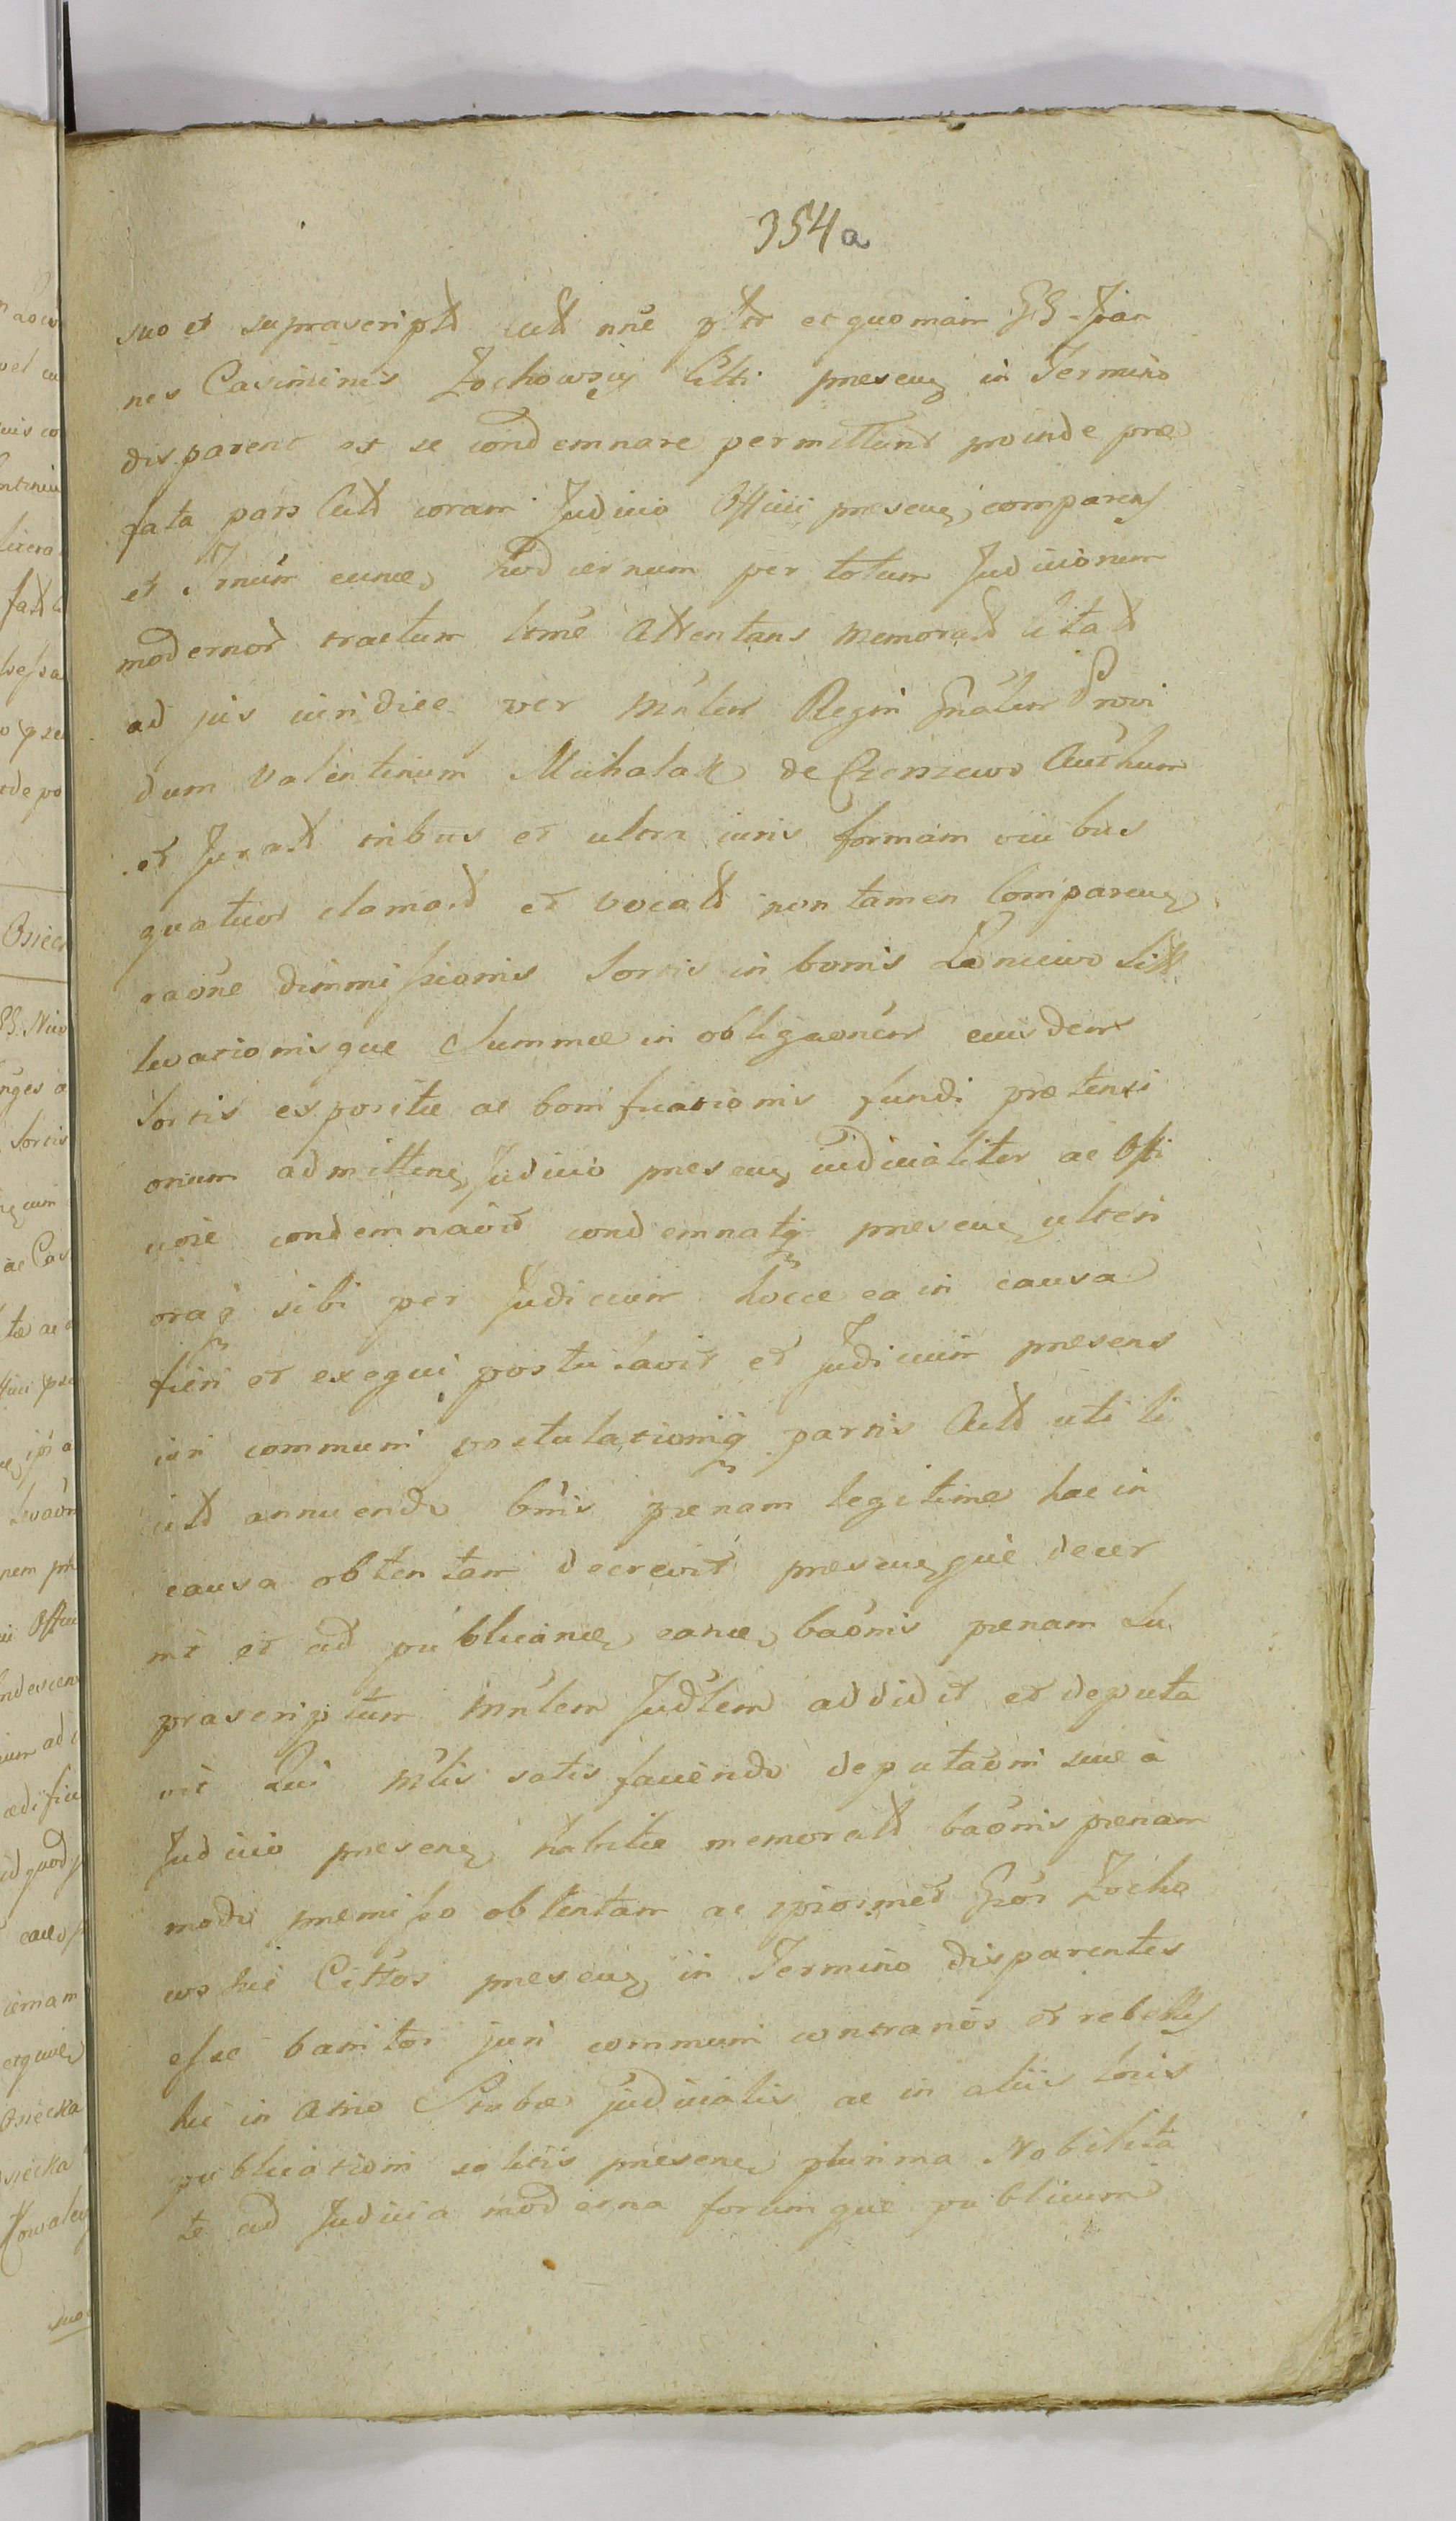 354a
suo et suprascript actt nne ptr et quoniam GG Joan
nes Casimirus Żochowscy Citti presens in Termino
disparent et se condemnare permittunt proinde præ
fata pars Actt coram Judicio Officii presens comparens
et Tmum eunde hodiernum per totum Judiciorum
modernor tractum ltme attentans memoratt Citatt
ad jus juridice per Mnlem Regni Gnalem Provi
dum Valentinum Michalak de authum
et Juratt tribus et ultra juris formam vicibus
quatuor clamatt et vocatt non tamen Comparen
raone dimmissionis Sortis in bonis Sitt
levationisque Summæ in obligaonem eiusdem
Sortis expositæ ac bonificationis fundi prætensi
onum admitten Judicio presen judicialiter ac Offi
ciose condemnavit condemnatq presen ulteri
oraq sibi per Judicium hocce ea in causa
fieri et exequi postulavit et Judicium presens
iuri communi postulationiq partis Actt uti li
citt annuendo bnis pœnam legitime hac in
causa obtentam decrevit presenque decer
nit et ad publicand eand baonis pœnam Su
prascriptum Mnlem Judlem addidit et deputa
vit Qui Mlis satis faciendo deputaoni suæ a
Judicio presen habitæ memoratt baonis pœnam
modo premisso obtentam ac ipsosmet Gsos Zocho
wskie Cittos presen in Termino disparentes
esse banitos juri communi contrarios et rebelles
hic in Atrio Stubæ judicialis ac in aliis locis
publicationi solitis presen plurima Nobilita
te ad Judicia moderna forumque publicum